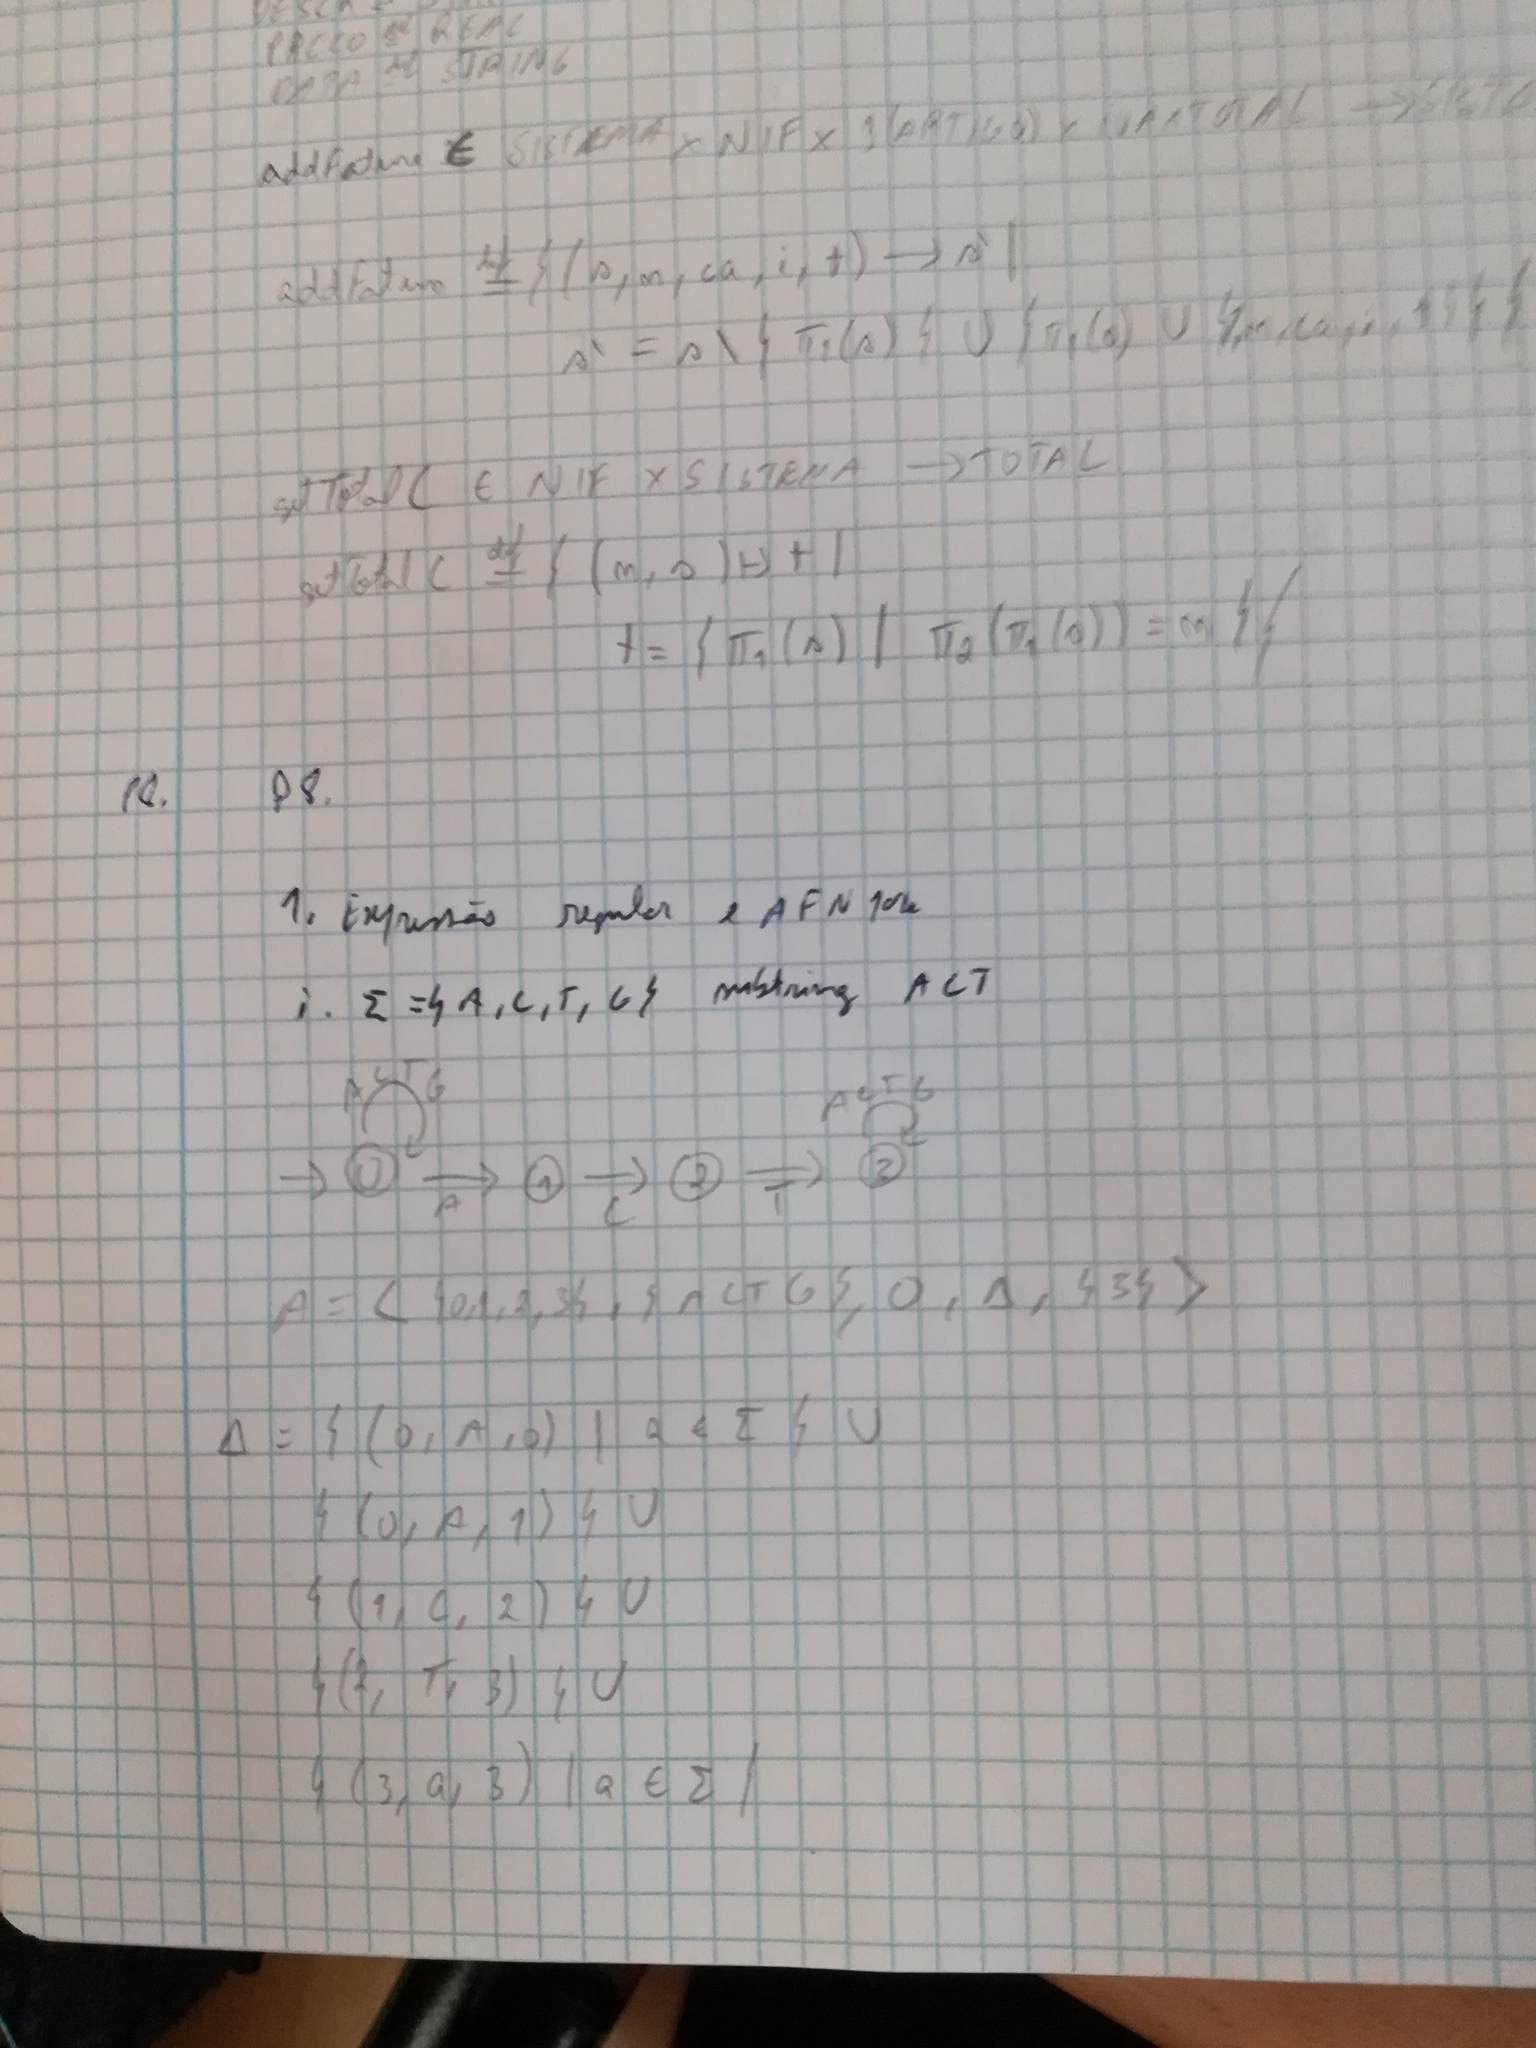 PREÇO def REAL
DATA def STRING
addFatura ∈ SISTEMA × NIF × (ARTIGO) ×
addFatura def= {(s, n, ca, i, t) → s' |
s' = s \ { π1(s) } ∪ { π1(s) ∪
getTotalC ∈ NIF × SISTEMA → TOTAL
getTotalC def= { (n, s) ↦ t |
t = { π1(s) | π2(π1(s)) = n } }
P8.
1. Expressão regular e AFN
i. Σ = { A, C, T, G } substring ACT
A C T G A C T G
→ 0 → 1 → 2 → 2
A C T
A = < {0,1,2,3}, { A C T G }, 0, Δ, {3} >
Δ = { (0, A, 0) | a ∈ Σ } ∪
{ (0, A, 1) } ∪
{ (1, C, 2) } ∪
{ (2, T, 3) } ∪
{ (3, a, 3) | a ∈ Σ |